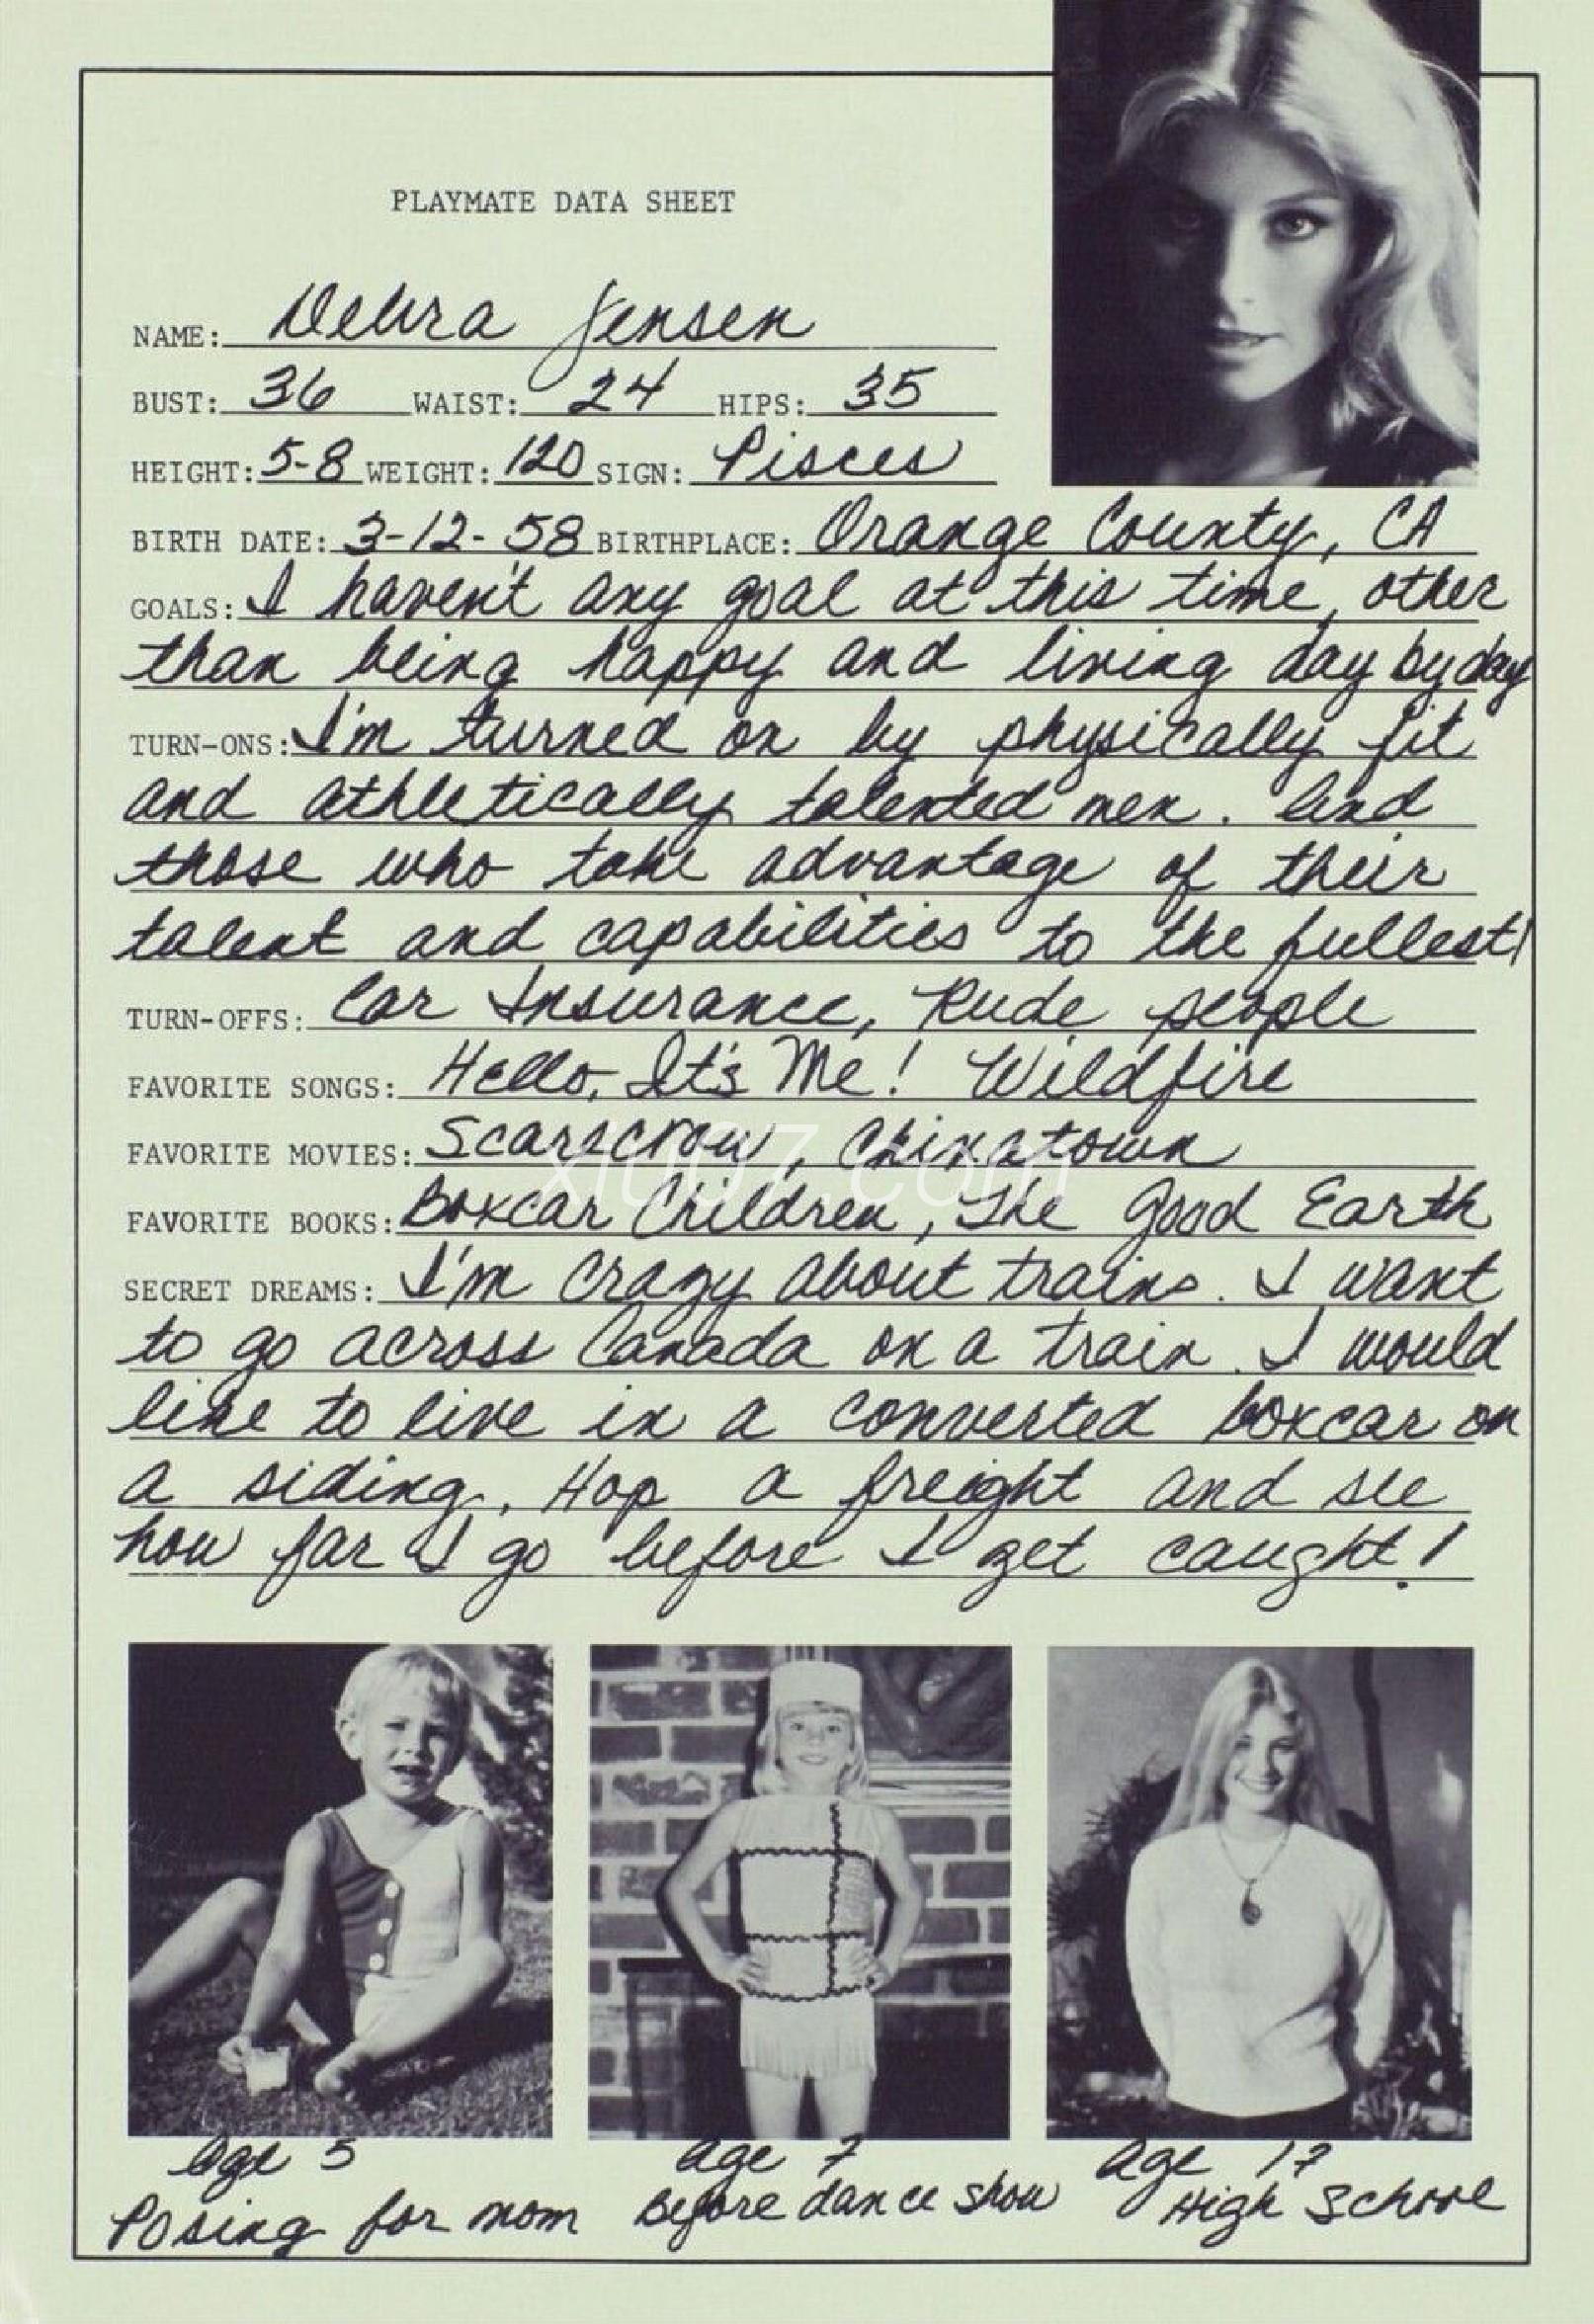 PLAYMATE DATA SHEET
NAME: Debra Jensen
BUST: 36 WAIST: 24 HIPS: 35
HEIGHT: 5-8 WEIGHT: 120 SIGN: Pisces
BIRTH DATE: 3-12-58 BIRTHPLACE: Orange County, CA
GOALS: I haven't any goal at this time, other
than being happy and living day by day
TURN-ONS: I'm turned on by physically fit
and athletically talented men. And
those who take advantage of their
talent and capabilities to the fullest!
TURN-OFFS: Car Insurance, Rude people
FAVORITE SONGS: Hello, It's Me! Wildfire
FAVORITE MOVIES: Scarecrow, Chinatown
FAVORITE BOOKS: Boxcar Children, The Good Earth
SECRET DREAMS: I'm crazy about trains. I want
to go across Canada on a train. I would
like to live in a converted boxcar on
a siding. Hop a freight and see
how far I go before I get caught!
Age 5
Posing for mom
Age 7
Before dance show
Age 17
High School